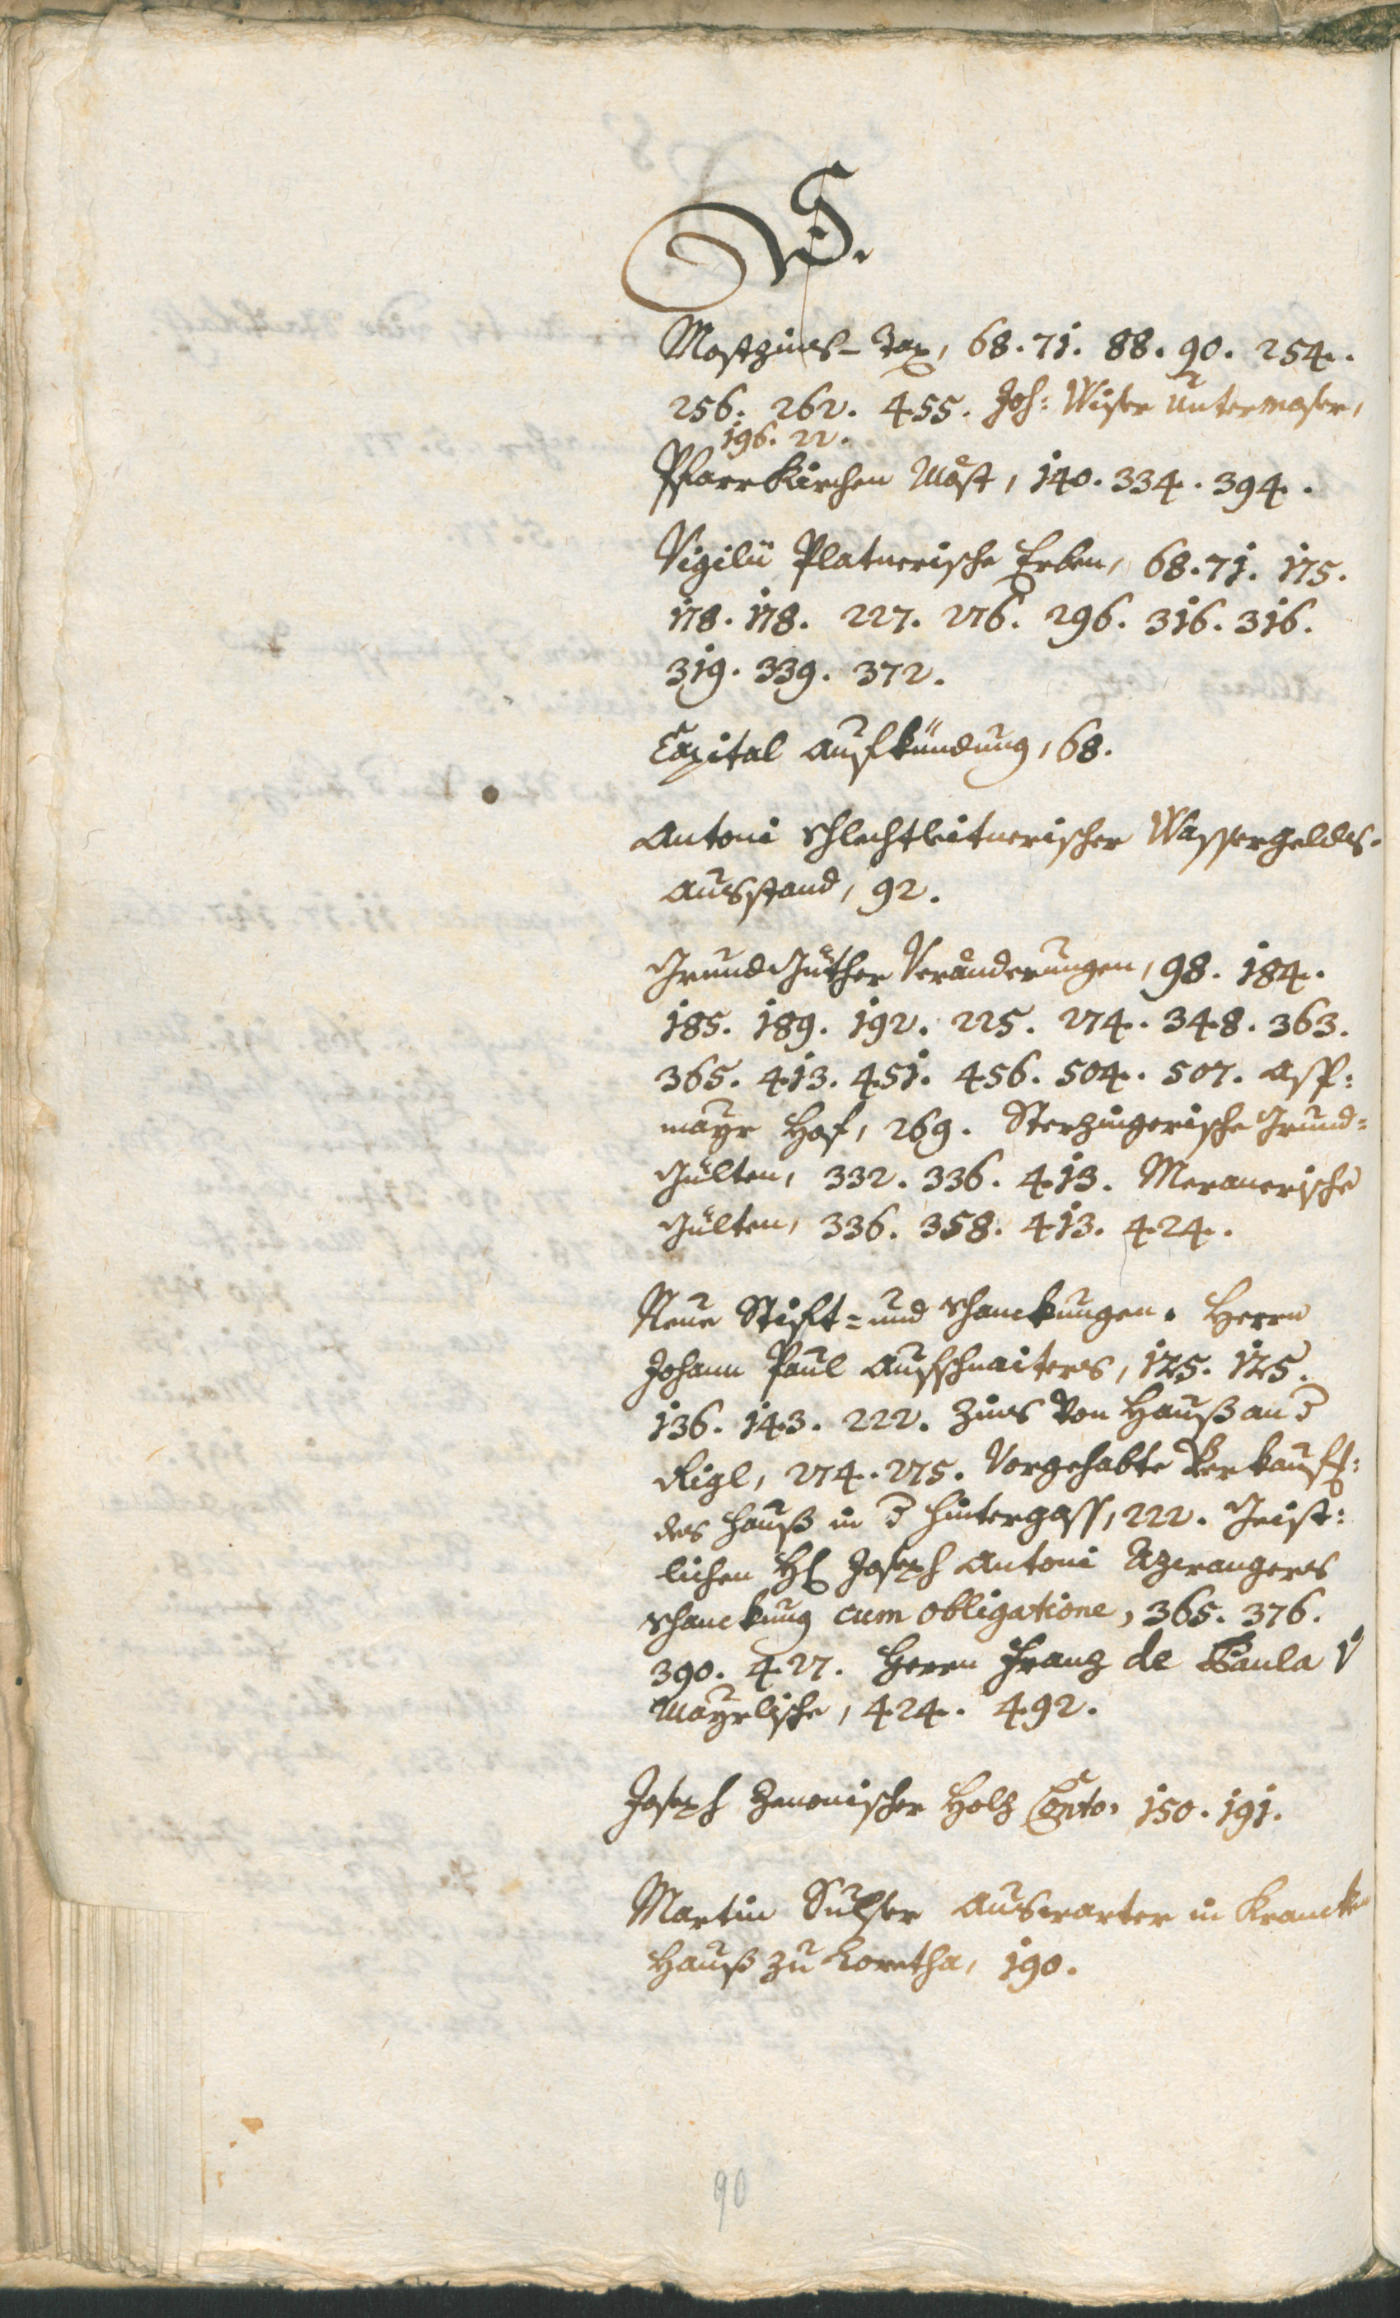 Mostzinss- Tax, 68. 71. 88. 90. 254.
256. 262. 455. Joh: Wiser Untermoser,
196. 22.
Pfarrkirchen Most, 140. 334. 394.
Vigilii Platnerische Erben, 68. 71. 175.
178. 178. 227. 276. 296. 316. 316.
319. 339. 372.
Capital Aufkündung, 68.
Antoni Schlechtleitnerischer Wassergelds-
Ausstand, 92.
Grund Güther Veränderungen, 98. 184.
185. 189. 192. 225. 274. 348. 363.
365. 413. 451. 456. 504. 507. Asp:
mayr Hof, 269. Sterzingerische Grund=
Gülten, 332. 336. 413. Meranerische
Gülten, 336. 358. 413. 424.
Neue Stift= und Schanckungen. Herrn
Johann Paul Aufschnaiters, 125. 125.
136. 143. 222. Zins von Hauß an d
Rigl, 274. 275. Vorgehabte Verkauff:
des Hauß in d Hintergass, 222. Geist:
lichen H Joseph Antoni Azwangers
Schanckung cum obligatione, 365. 376.
390. 427. Herrn Franz de Paula v
Mayrlische, 424. 492.
Joseph Zenonischer Holz Conto, 150. 191.
Martin Sulser Auswarter in Krancken
Hauß zu Loretha, 190.
90